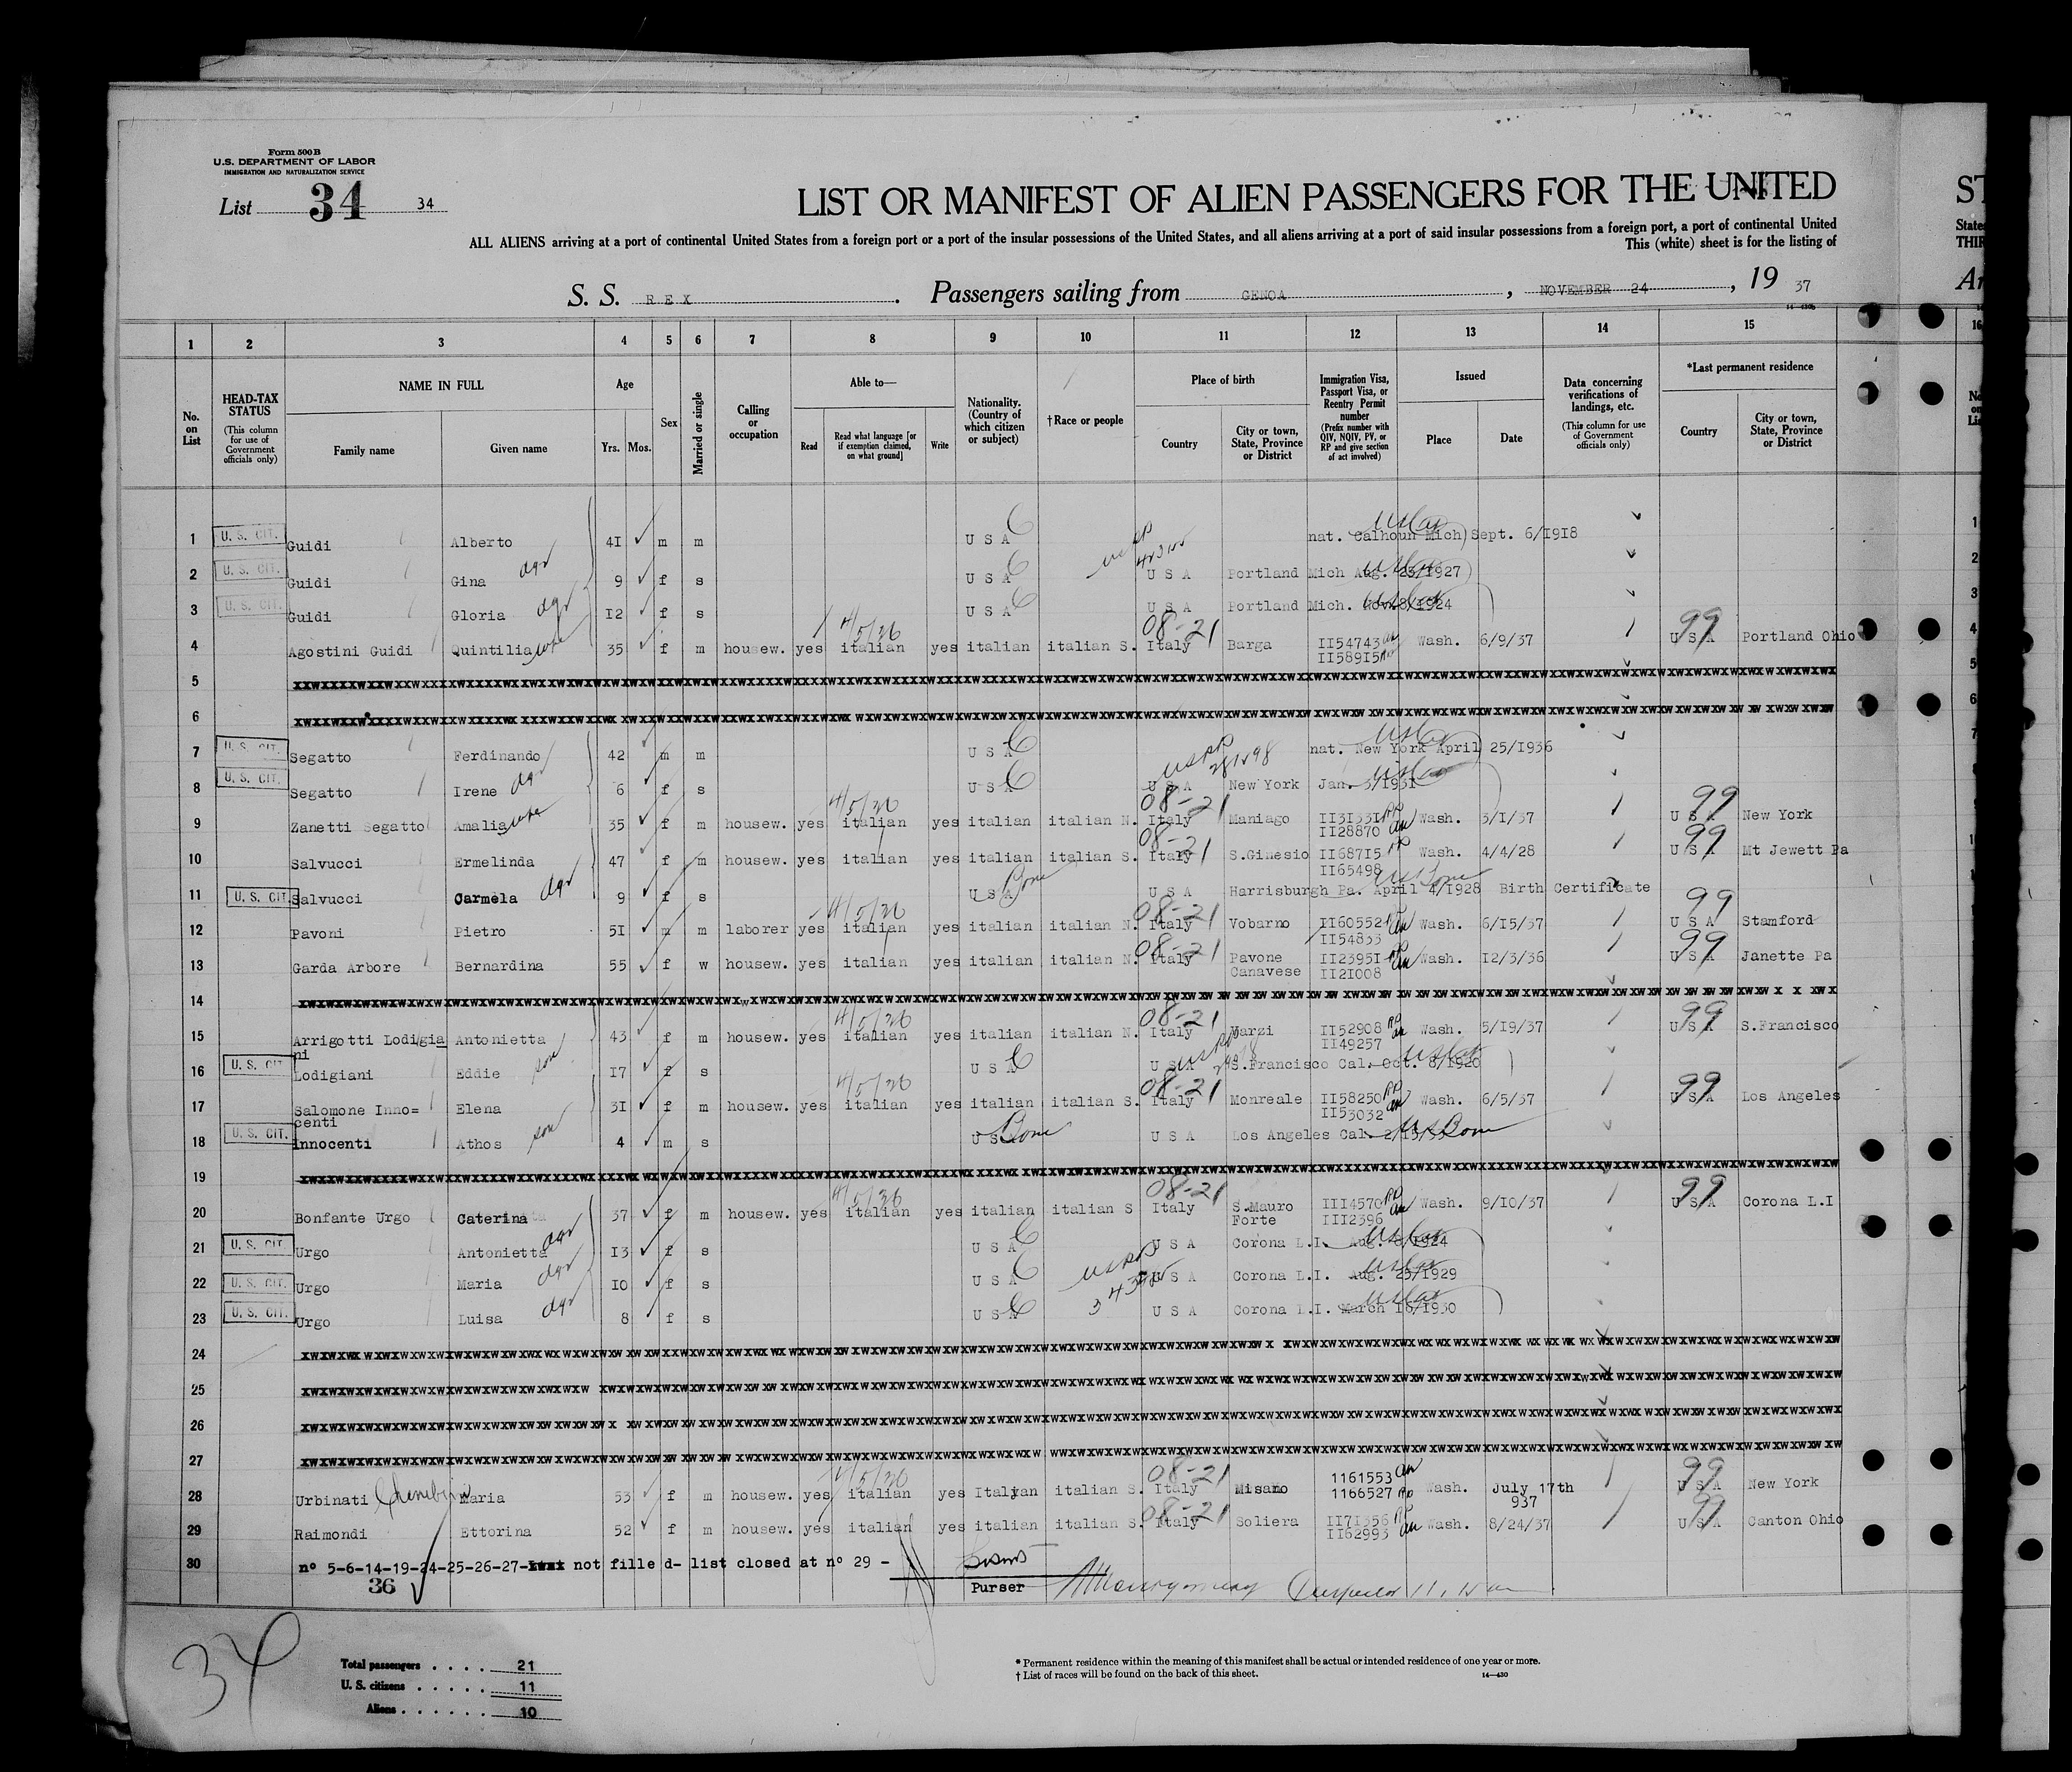 Form 500 B
U.S. DEPARTMENT OF LABOR
IMMIGRATION AND NATURALIZATION SERVICE
List 34 34
LIST OR MANIFEST OF ALIEN PASSENGERS FOR THE UNITED
ALL ALIENS arriving at a port of continental United States from a foreign port or a port of the insular possessions of the United States, and all aliens arriving at a port of said insular possessions from a foreign port, a port of continental United
This (white) sheet is for the listing of
S. S. REX. Passengers sailing from GENOA, NOVEMBER 24, 19 37
1 2 3 4 5 6 7 8 9 10 11 12 13 14 15
No. on List
HEAD-TAX STATUS (This column for use of Government officials only)
NAME IN FULL Family name Given name
Age Yrs. Mos.
Sex
Married or single
Calling or occupation
Able to— Read Read what language [or if exemption claimed, on what ground] Write
Nationality. (Country of which citizen or subject)
†Race or people
Place of birth Country City or town, State, Province or District
Immigration Visa, Passport Visa, or Reentry Permit number (Prefix number with QIV, NQIV, PV, or RP and give section of act involved)
Issued Place Date
Data concerning verifications of landings, etc. (This column for use of Government officials only)
*Last permanent residence Country City or town, State, Province or District
1 U. S. CIT. Guidi Alberto 4I m m U S A nat. Calhoun Mich) Sept. 6/I9I8
2 U. S. CIT. Guidi Gina dgr 9 f s U S A U S A Portland Mich Aug. 25/I927)
3 U. S. CIT. Guidi Gloria dgr I2 f s U S A U S A Portland Mich. 8/I924
4 Agostini Guidi Quintilia wife 35 f m housew. yes italian yes italian italian S. Italy 08-21 Barga II54743 II589I5 Wash. 6/9/37 U S A 99 Portland Ohio
5
6
7 U. S. CIT. Segatto Ferdinando 42 m m U S A nat. New York April 25/I936
8 U. S. CIT. Segatto Irene dgr 6 f s U S A U S A New York Jan. 3/I93I
9 Zanetti Segatto Amalia wife 35 f m housew. yes italian yes italian italian N. Italy 08-21 Maniago II3I33I II28870 Wash. 3/I/37 U S A 99 New York
10 Salvucci Ermelinda 47 f m housew. yes italian yes italian italian S. Italy 08-21 S.Ginesio II687I5 II65498 Wash. 4/4/28 U S A 99 Mt Jewett Pa
11 U. S. CIT. Salvucci Carmela dgr 9 f s U S A U S A Harrisburgh Pa. April 4/I928 Birth Certificate
12 Pavoni Pietro 5I m m laborer yes italian yes italian italian N. Italy 08-21 Vobarno II60552 II54833 Wash. 6/I5/37 U S A 99 Stamford
13 Garda Arbore Bernardina 55 f w housew. yes italian yes italian italian N. Italy 08-21 Pavone Canavese II2395I II2I008 Wash. I2/3/36 U S A 99 Janette Pa
14
15 Arrigotti Lodigiani Antonietta 43 f m housew. yes italian yes italian italian N. Italy 08-21 Varzi II52908 II49257 Wash. 5/I9/37 U S A 99 S.Francisco
16 U. S. CIT. Lodigiani Eddie son I7 f s U S A U S A S.Francisco Cal. Oct. 8/I920
17 Salomone Inno=centi Elena 3I f m housew. yes italian yes italian italian S. Italy 08-21 Monreale II58250 II53032 Wash. 6/5/37 U S A 99 Los Angeles
18 U. S. CIT. Innocenti Athos son 4 m s U S U S A Los Angeles Cal.
19
20 Bonfante Urgo Caterina 37 f m housew. yes italian yes italian italian S Italy 08-21 S.Mauro Forte III4570 III2396 Wash. 9/I0/37 U S A 99 Corona L.I
21 U. S. CIT. Urgo Antonietta dgr I3 f s U S A U S A Corona L.I. Aug. 8/I924
22 U. S. CIT. Urgo Maria dgr I0 f s U S A U S A Corona L.I. Aug. 25/I929
23 U. S. CIT. Urgo Luisa dgr 8 f s U S A U S A Corona L.I. March I6/I930
24
25
26
27
28 Urbinati Maria 53 f m housew. yes italian yes Italian italian S. Italy 08-21 Misano 1161553 1166527 Wash. July 17th 937 U S A 99 New York
29 Raimondi Ettorina 52 f m housew. yes italian yes italian italian S. Italy 08-21 Soliera II7I356 II62993 Wash. 8/24/37 U S A 99 Canton Ohio
30 n° 5-6-14-19-24-25-26-27- not filled- list closed at n° 29 -
36
Purser
34
Total passengers . . . . 21
U. S. citizens . . . . . 11
Aliens . . . . . . 10
* Permanent residence within the meaning of this manifest shall be actual or intended residence of one year or more.
† List of races will be found on the back of this sheet.
14—430